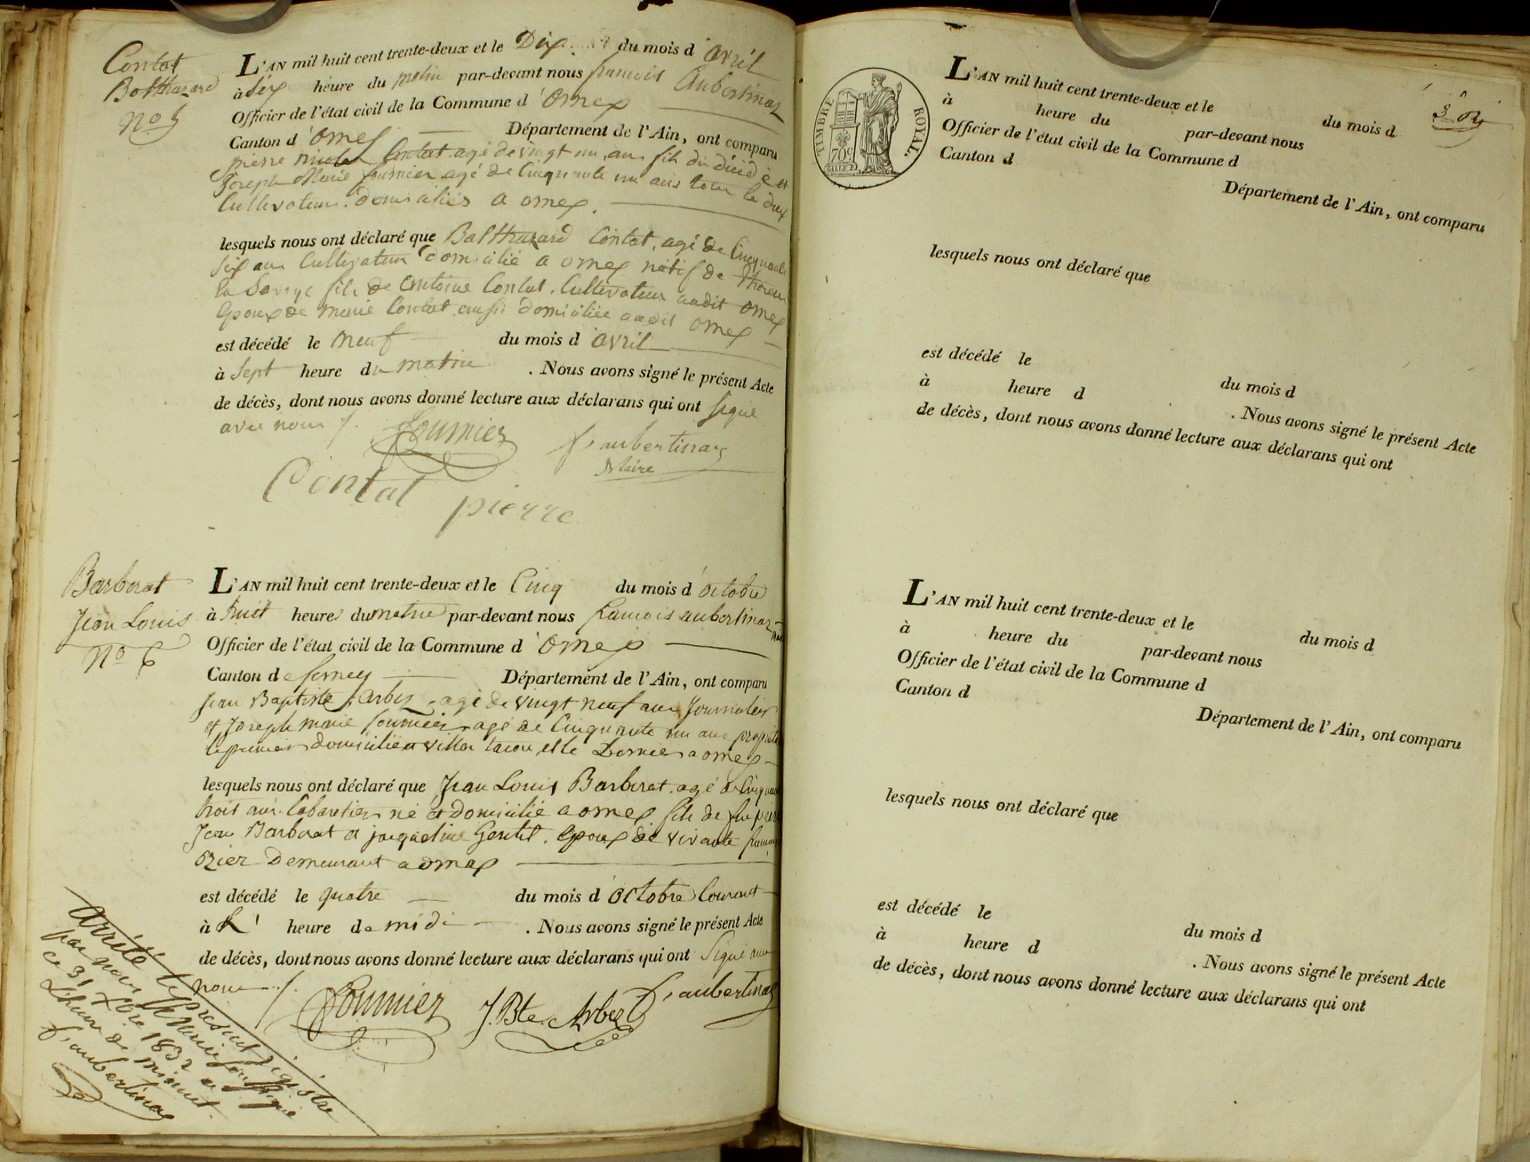 Contat
Balthazard
No 5
L'AN mil huit cent trente-deux et le Dix du mois d'avril
à Six heure du matin par-devant nous francois Aubertinaz
Officier de l'état civil de la Commune d'Ornex
Canton d'Ornex Département de l'Ain, ont comparu
pierre Contat agé de vingt un ans fils du décédé et
Joseph Marie fournier agé de Cinquante un ans tous le deux
Cultivateur domiciliés a ornex.
lesquels nous ont déclaré que Balthazard Contat, agé de Cinquante
Six ans Cultivateur domicilié a ornex natif de
la Savoye fils de Antoine Contat. Cultivateur audit ornex
Epoux de Marie Contat aussi domiciliée audit ornex
est décédé le neuf du mois d'avril
à Sept heure du matin . Nous avons signé le présent Acte
de décès, dont nous avons donné lecture aux déclarans qui ont Signé
avec nous
fournier f. aubertinaz
Maire
Contat pierre
Barberat
Jean Louis
No 6
L'AN mil huit cent trente-deux et le Cinq du mois d'octobre
à huit heures du matin par-devant nous francois aubertinaz
Officier de l'état civil de la Commune d'Ornex
Canton de ferney Département de l'Ain, ont comparu
Jean Baptiste Arbez agé de vingt neuf ans Journalier
et Joseph marie fournier agé de Cinquante un ans
le premier domicilié a et le Dernier a ornex
lesquels nous ont déclaré que Jean Louis Barberat agé de Cinquante
trois ans Cabaretier né et domicilié a ornex fils de
Jean Barberat et jacqueline Gentil. Epoux de vivante
Demeurant a ornex
est décédé le quatre du mois d'octobre Courant
à heure de midi . Nous avons signé le présent Acte
de décès, dont nous avons donné lecture aux déclarans qui ont Signé avec
nous
fournier J. Bte Arbez f. aubertinaz
arrêté le présent registre
par nous Maire Soussigné
ce 31 Xbre 1832 a
L'heure de minuit.
f. aubertinaz
TIMBRE ROYAL.
70c
L'AN mil huit cent trente-deux et le du mois d
à heure du par-devant nous
Officier de l'état civil de la Commune d
Canton d
Département de l'Ain, ont comparu
lesquels nous ont déclaré que
est décédé le
du mois d
à heure d . Nous avons signé le présent Acte
de décès, dont nous avons donné lecture aux déclarans qui ont
L'AN mil huit cent trente-deux et le du mois d
à heure du par-devant nous
Officier de l'état civil de la Commune d
Canton d
Département de l'Ain, ont comparu
lesquels nous ont déclaré que
est décédé le
du mois d
à heure d . Nous avons signé le présent Acte
de décès, dont nous avons donné lecture aux déclarans qui ont